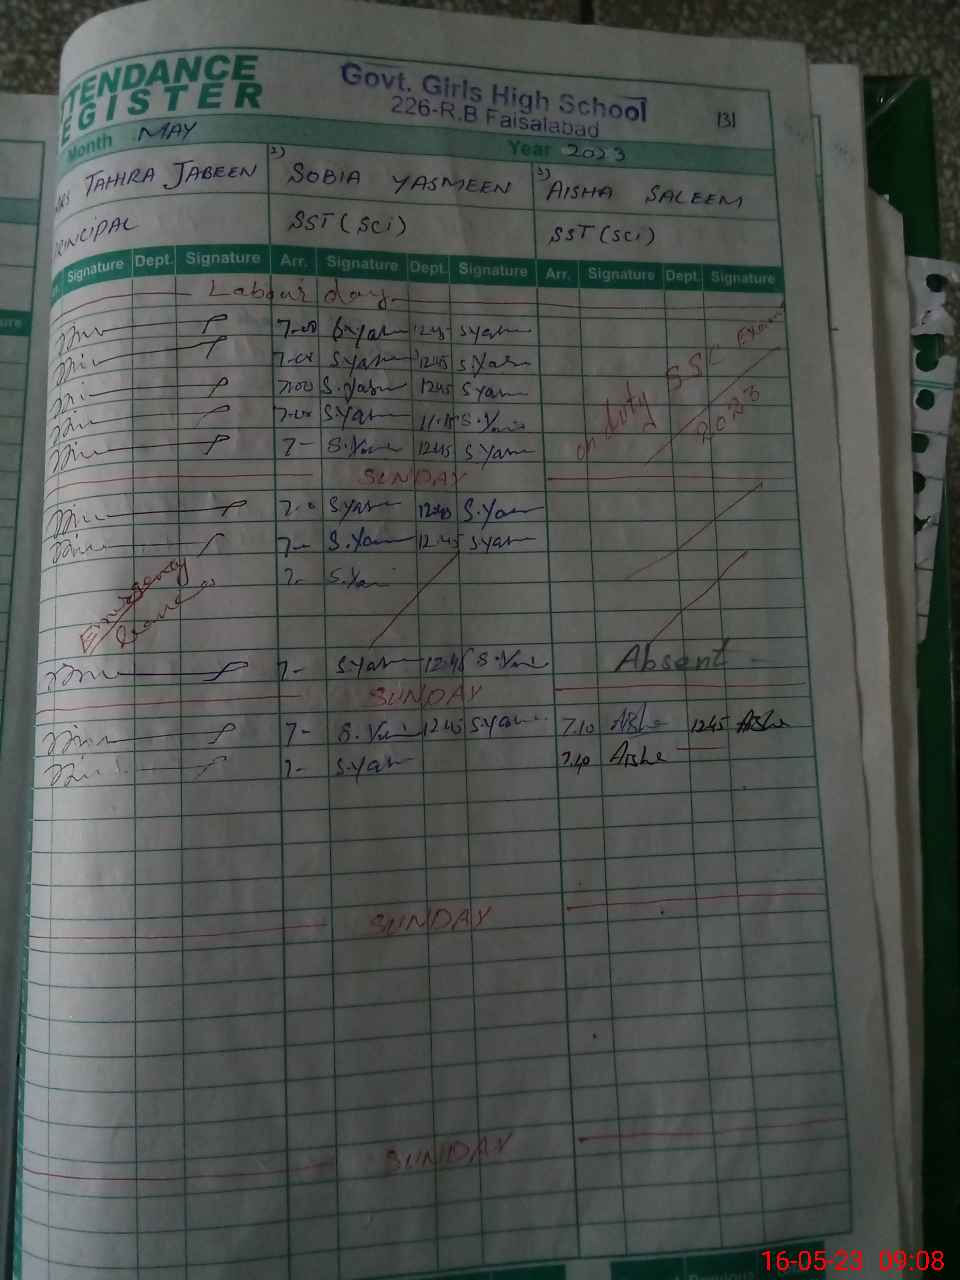 TTENDANCE
EGISTER
Govt. Girls High School
226-R.B Faisalabad
131
Month MAY Year 2023
MRS TAHIRA JABEEN 2) SOBIA YASMEEN 3) AISHA SALEEM
PRINCIPAL SST (SCi) SST (SCi)
Signature Dept. Signature Arr. Signature Dept. Signature Arr. Signature Dept. Signature
Labour day
7-00 S.Yasm 1245 S.Yasm
7-00 S.Yasm 1245 S.Yasm
7.00 S.Yasm 1245 S.Yasm
7-00 S.Yasm S.Yasm
7- S.Yasm 1245 S.Yasm
on duty SSC Exam
2023
SUNDAY
7-0 S.Yasm S.Yasm
7- S.Yasm 12.45 S.Yasm
7- S.Yasm
Emergency
leave
7- S.Yasm 12.45 S.Yasm Absent
SUNDAY
7- S.Yasm 12.45 S.Yasm 7.10 Aisha 1245 Aisha
7- S.Yasm 7.10 Aisha
SUNDAY
SUNDAY
16-05-23 09:08